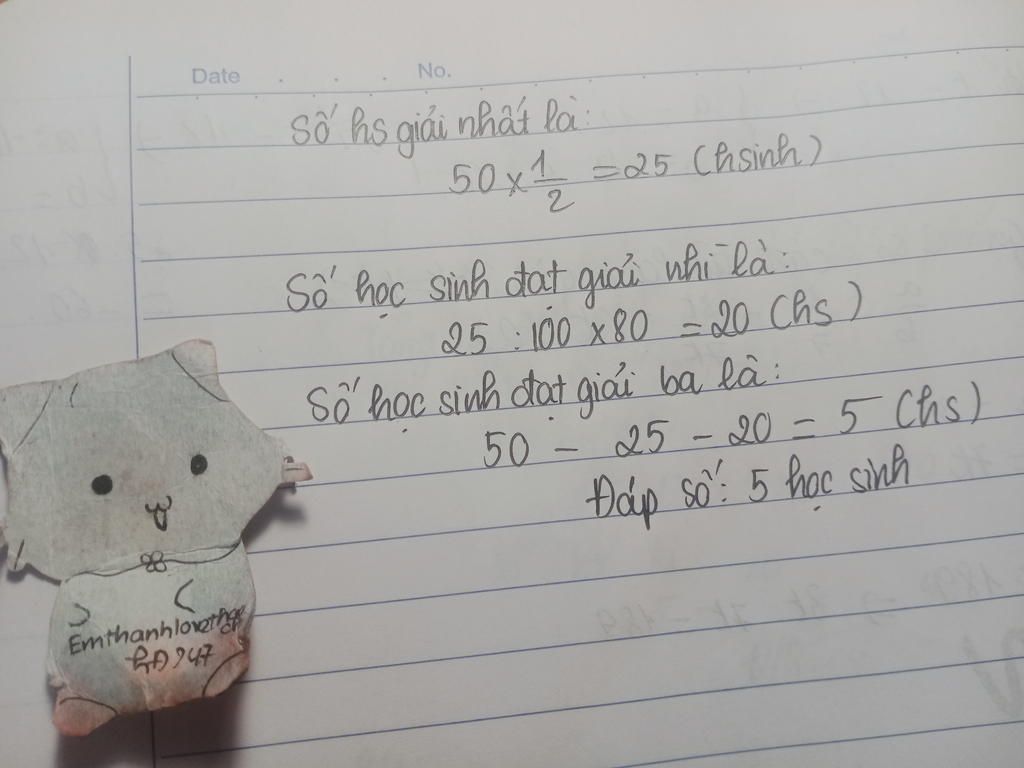 Date . . . No.
Số hs giải nhất là:
50 × 1/2 = 25 (hsinh)
Số học sinh đạt giải nhì là:
25 : 100 × 80 = 20 (hs)
Số học sinh đạt giải ba là:
50 - 25 - 20 = 5 (hs)
Đáp số: 5 học sinh